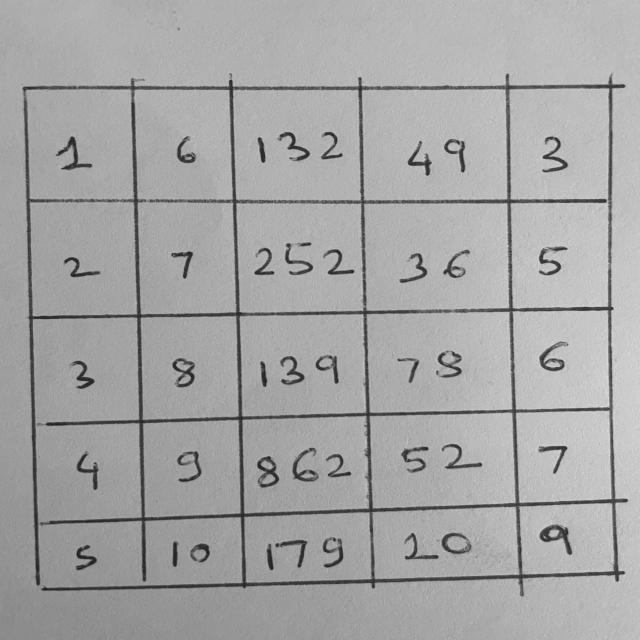 1 6 132 49 3
2 7 252 36 5
3 8 139 78 6
4 9 862 52 7
5 10 179 20 9